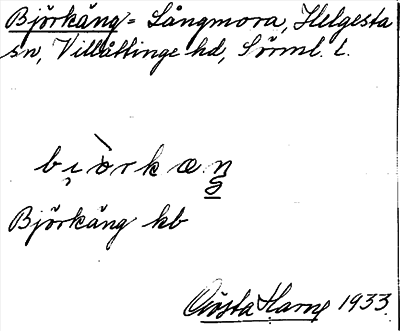 Björkäng = Långmora, Helgesta
sn, Villåttinge hd, Sörml. l.
bi̯òrkæŋ
Björkäng kb
Gösta Harne 1933.